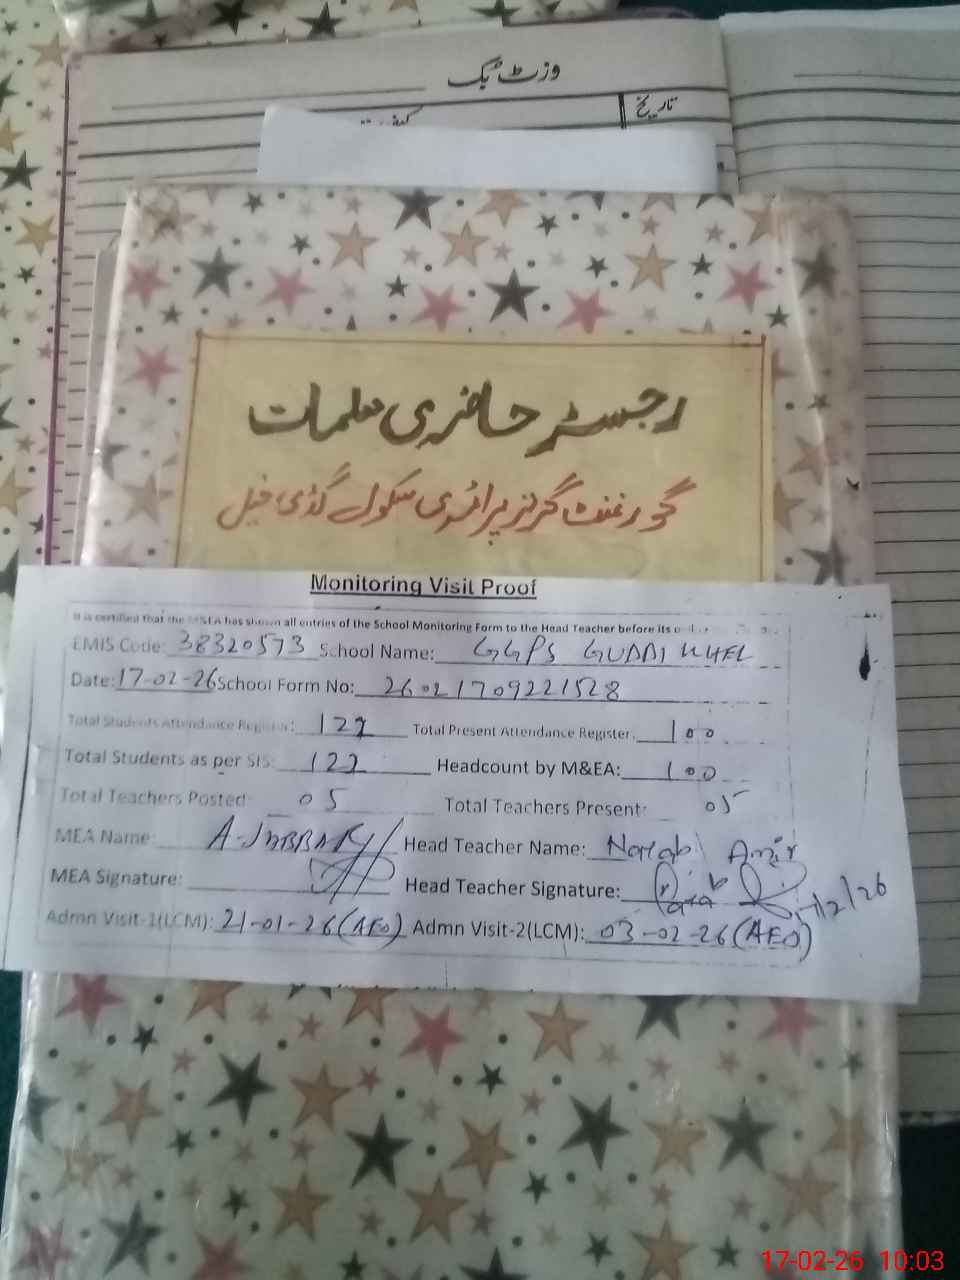 وزٹ بک
تاریخ
رجسٹر حاضری معلمات
گورنمنٹ گرلز پرائمری سکول گڈی خیل
Monitoring Visit Proof
It is certified that the M&EA has shown all entries of the School Monitoring Form to the Head Teacher before its
EMIS Code: 38320573 School Name: GGPS GUDDI KHEL
Date: 17-02-26 School Form No: 26021709221528
Total Students Attendance Register: 122 Total Present Attendance Register: 100
Total Students as per SIS: 122 Headcount by M&EA: 100
Total Teachers Posted: 05 Total Teachers Present: 05
MEA Name: A-JABBAR Head Teacher Name:
MEA Signature: Head Teacher Signature:
Admn Visit-1(LCM): 21-01-26 (AEO) Admn Visit-2(LCM): 03-02-26 (AEO)
17-02-26 10:03